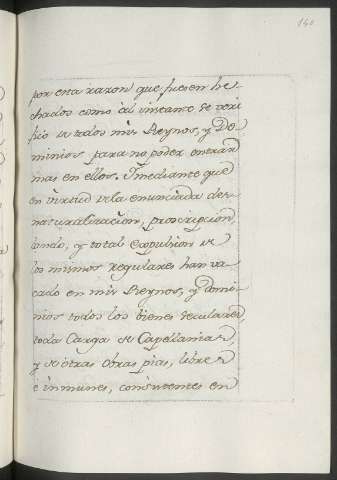 140
por esta razon que fuesen he-
chados como àl instante se veri
ficó de todos mis Reynos, y Do-
minios para no poder entrar
mas en ellos. I mediante que
en virtud de la enunciada des-
naturalizacion, proscripcion,
bando, y total Expulsion de
los mismos regulares han va-
cado en mis Reynos, y domi-
nios todos los bienes seculares,
toda Carga de Capellanias,
y de otras obras pias, libres
è inmunes, consistentes en